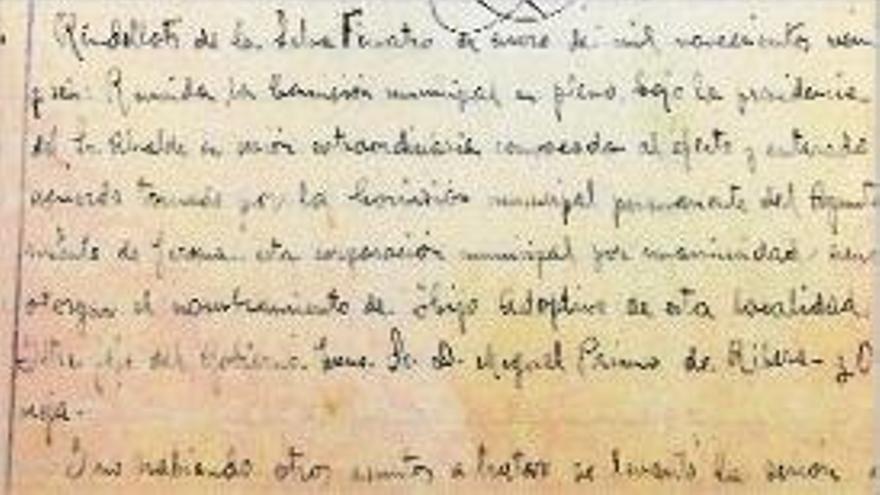 Riudellots de la Selva cuatro de enero de mil novecientos vein
y seis. Reunida la Comisión municipal en pleno, bajo la presidencia
del Sr. Alcalde en sesión extraordinaria convocada al efecto y enterada
acuerdo tomado por la Comisión municipal permanente del Ayunta
miento de Gerona esta corporación municipal por unanimidad
otorgar el nombramiento de Hijo adoptivo de esta localidad
Jefe del Gobierno Excmo. Sr. D. Miguel Primo de Rivera y O
neja.
Y no habiendo otros asuntos a tratar se levantó la sesión